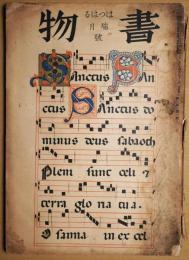 書物
はつはる
号
月
Sanctus San
ctus Sanctus do
minus deus sabaoth
Pleni sunt celi &
terra glo na tua.
O sanna in ex cel